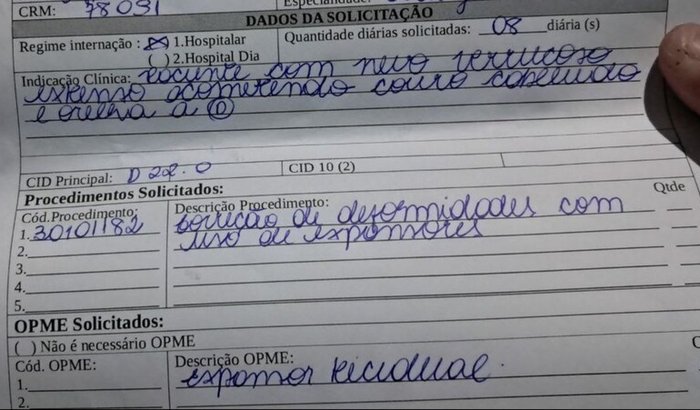 CRM: 78031
DADOS DA SOLICITAÇÃO
Regime internação : (X) 1.Hospitalar Quantidade diárias solicitadas: 08 diária (s)
( ) 2.Hospital Dia
Indicação Clínica: Paciente com nevo verrucoso
extenso acometendo couro cabeludo
e orelha à D
CID Principal: D 22. 0 CID 10 (2)
Procedimentos Solicitados:
Cód.Procedimento: Descrição Procedimento: Qtde
1. 30101182 Correção de deformidades com
2. uso de expansores
3.
4.
5.
OPME Solicitados:
( ) Não é necessário OPME
Cód. OPME: Descrição OPME:
1. expansor
2.